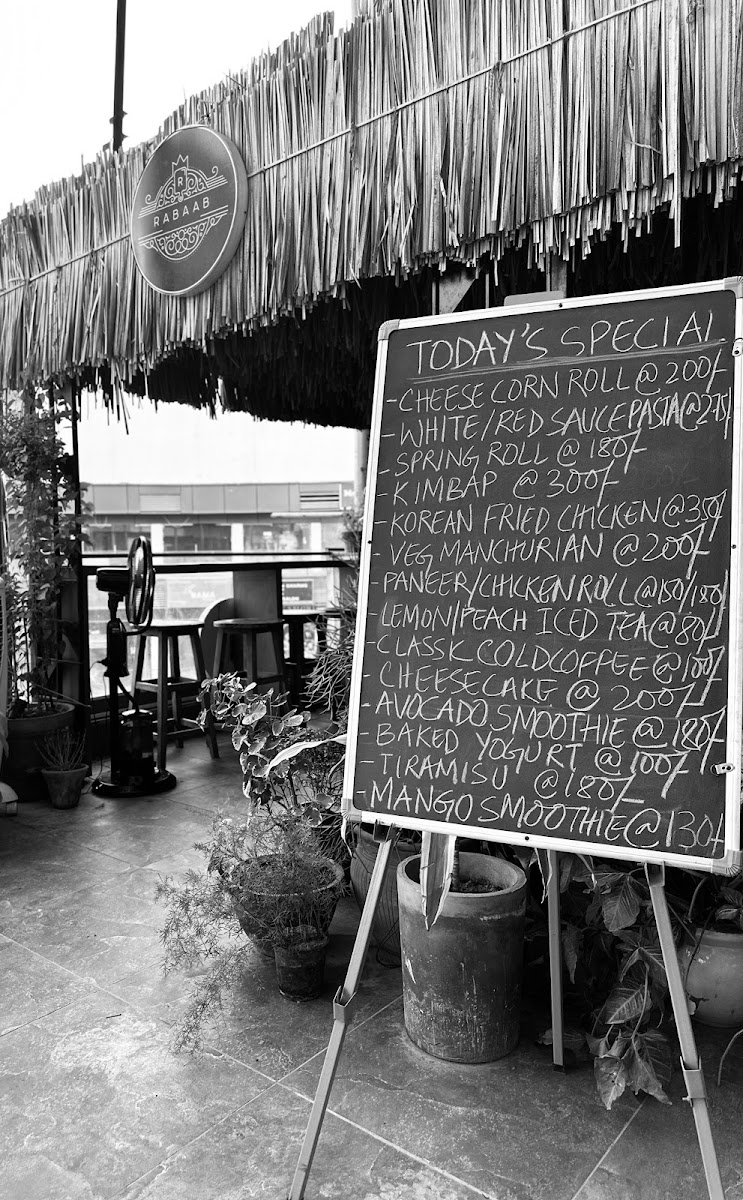 R
RABAAB
TODAY'S SPECIAL
- CHEESE CORN ROLL @ 200/-
- WHITE/RED SAUCE PASTA @ 275/-
- SPRING ROLL @ 180/-
- KIMBAP @ 300/-
- KOREAN FRIED CHICKEN @ 350/-
- VEG MANCHURIAN @ 200/-
- PANEER/CHICKEN ROLL @ 150/180/-
- LEMON/PEACH ICED TEA @ 80/-
- CLASSIC COLD COFFEE @ 100/-
- CHEESECAKE @ 200/-
- AVOCADO SMOOTHIE @ 180/-
- BAKED YOGURT @ 100/-
- TIRAMISU @ 180/-
- MANGO SMOOTHIE @ 130/-